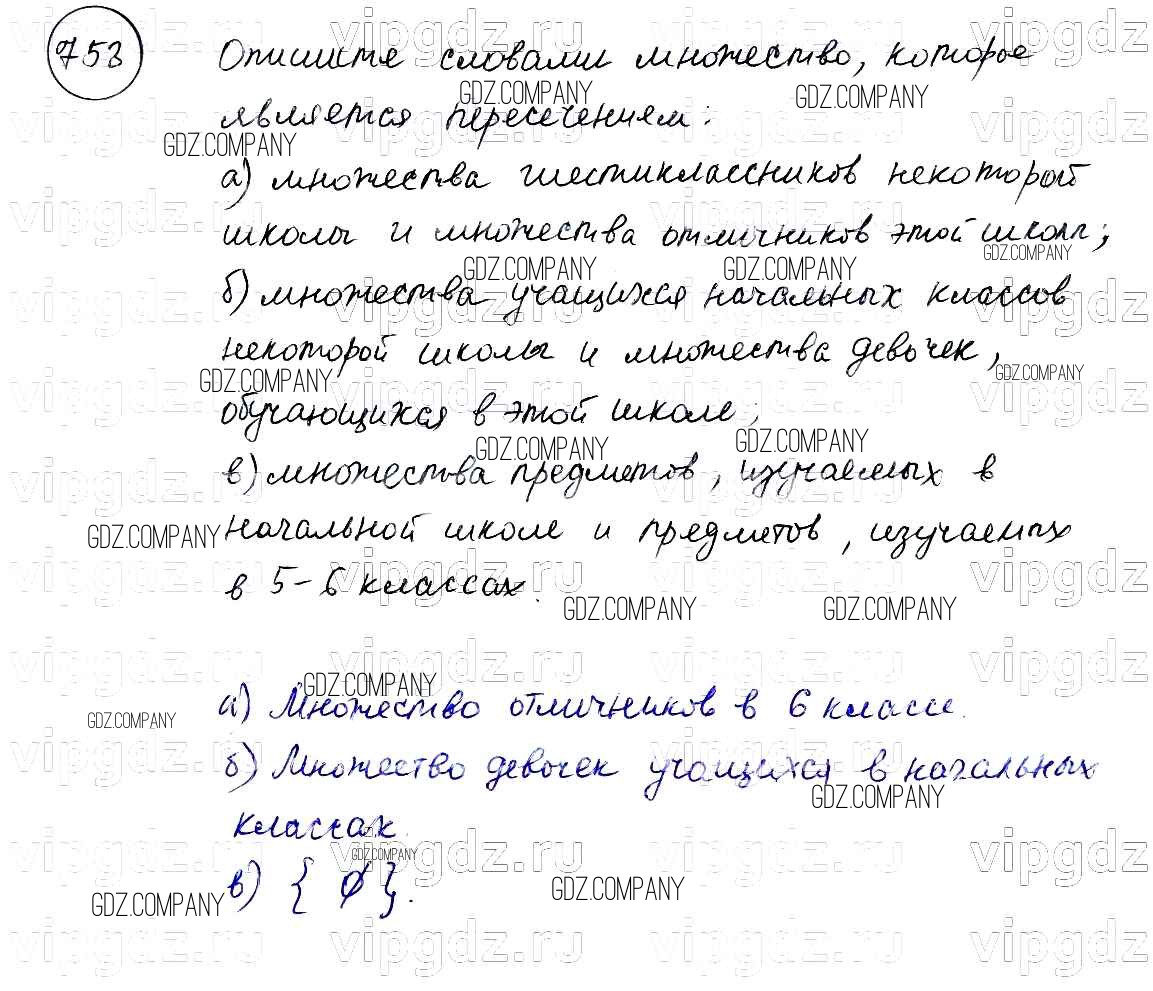 753 Опишите словами множество, которое
является пересечением:
а) множества шестиклассников некоторой
школы и множества отличников этой школы;
б) множества учащихся начальных классов
некоторой школы и множества девочек,
обучающихся в этой школе;
в) множества предметов, изучаемых в
начальной школе и предметов, изучаемых
в 5-6 классах.
а) Множество отличников в 6 классе.
б) Множество девочек учащихся в начальных
классах.
в) { ∅ }.